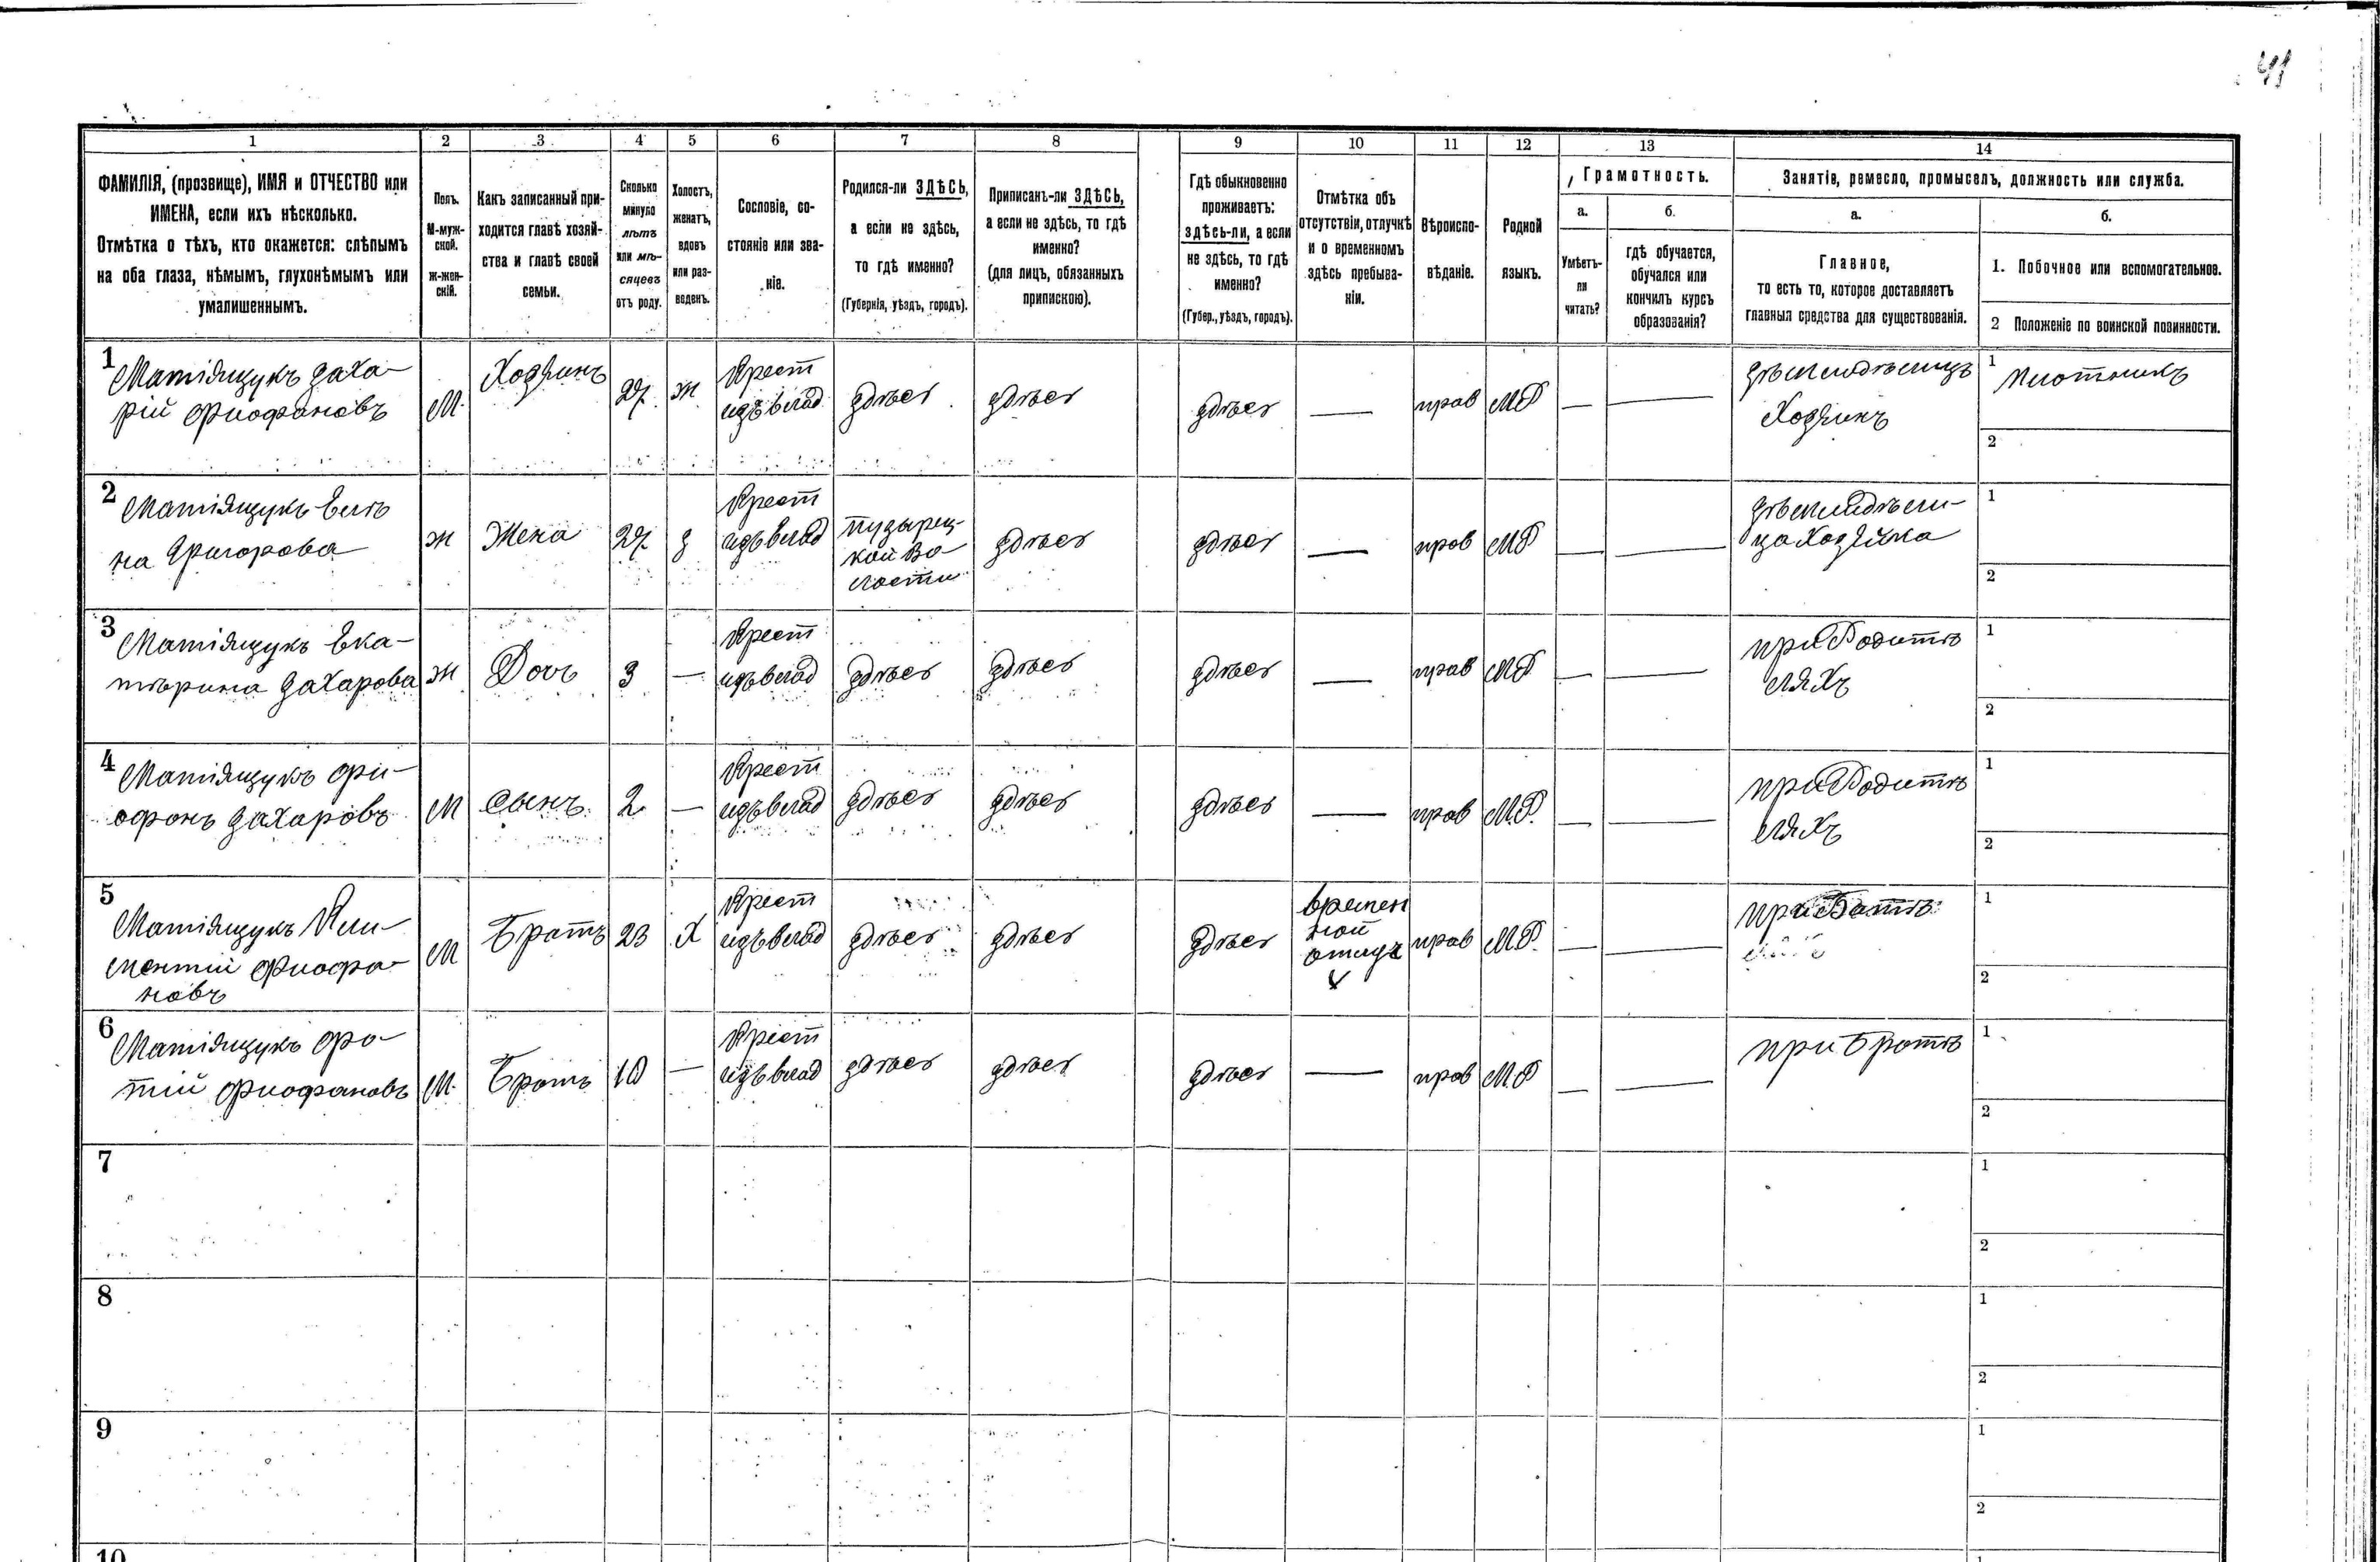 41
1 2 3 4 5 6 7 8 9 10 11 12 13 14
ФАМИЛІЯ, (прозвище), ИМЯ и ОТЧЕСТВО или
ИМЕНА, если ихъ нѣсколько.
Отмѣтка о тѣхъ, кто окажется: слѣпымъ
на оба глаза, нѣмымъ, глухонѣмымъ или
умалишеннымъ.
Полъ.
М-муж-
ской.
Ж-жен-
скій.
Какъ записанный при-
ходится главѣ хозяй-
ства и главѣ своей
семьи.
Сколько
минуло
лѣтъ
или мѣ-
сяцевъ
отъ роду.
Холостъ,
женатъ,
вдовъ
или раз-
веденъ.
Сословіе, со-
стояніе или зва-
ніе.
Родился-ли ЗДѢСЬ,
а если не здѣсь,
то гдѣ именно?
(Губернія, уѣздъ, городъ).
Приписанъ-ли ЗДѢСЬ,
а если не здѣсь, то гдѣ
именно?
(для лицъ, обязанныхъ
припискою).
Гдѣ обыкновенно
проживаетъ:
здѣсь-ли, а если
не здѣсь, то гдѣ
именно?
(Губер., уѣздъ, городъ).
Отмѣтка объ
отсутствіи, отлучкѣ
и о временномъ
здѣсь пребыва-
ніи.
Вѣроиспо-
вѣданіе.
Родной
языкъ.
Грамотность.
а.
Умѣетъ-
ли
читать?
б.
гдѣ обучается,
обучался или
кончилъ курсъ
образованія?
Занятіе, ремесло, промыселъ, должность или служба.
а.
Главное,
то есть то, которое доставляетъ
главныя средства для существованія.
б.
1. Побочное или вспомогательное.
2 Положеніе по воинской повинности.
1
Матіящукъ Заха-
рій Фиофановъ
М.
Хозяинъ
27
ж
Крест
изъ влад
здѣсь
здѣсь
здѣсь
—
прав
МР
—
—
землидѣлицъ
Хозяинъ
1 Плотникъ
2
2
Матіящукъ Еле
на Григорова
ж
Жена
27
з
Крест
изъ влад
Пузырец-
кой Во
лости
здѣсь
здѣсь
—
прав
МР
—
—
землидѣли-
ца Хозяйка
1
2
3
Матіящукъ Ека-
тѣрина Захарова
ж
Дочь
3
—
Крест
изъ влад
здѣсь
здѣсь
здѣсь
—
прав
МР
—
—
при Родитѣ
ляхъ
1
2
4
Матіящукъ Фи-
офонъ Захаровъ
М
Сынъ
2
—
Крест
изъ влад
здѣсь
здѣсь
здѣсь
—
прав
М.Р.
—
—
при Родитѣ
ляхъ
1
2
5
Матіящукъ Кли-
ментий Фиофа-
новъ
М
Братъ
23
Х
Крест
изъ влад
здѣсь
здѣсь
здѣсь
времен
ной
прав
М.Р.
—
—
1
2
6
Матіящукъ Фо-
тій Фиофановъ
М.
Братъ
10
—
Крест
изъ влад
здѣсь
здѣсь
здѣсь
—
прав
М.Р
—
—
при Братѣ
1
2
7
1
2
8
1
2
9
1
2
10
1